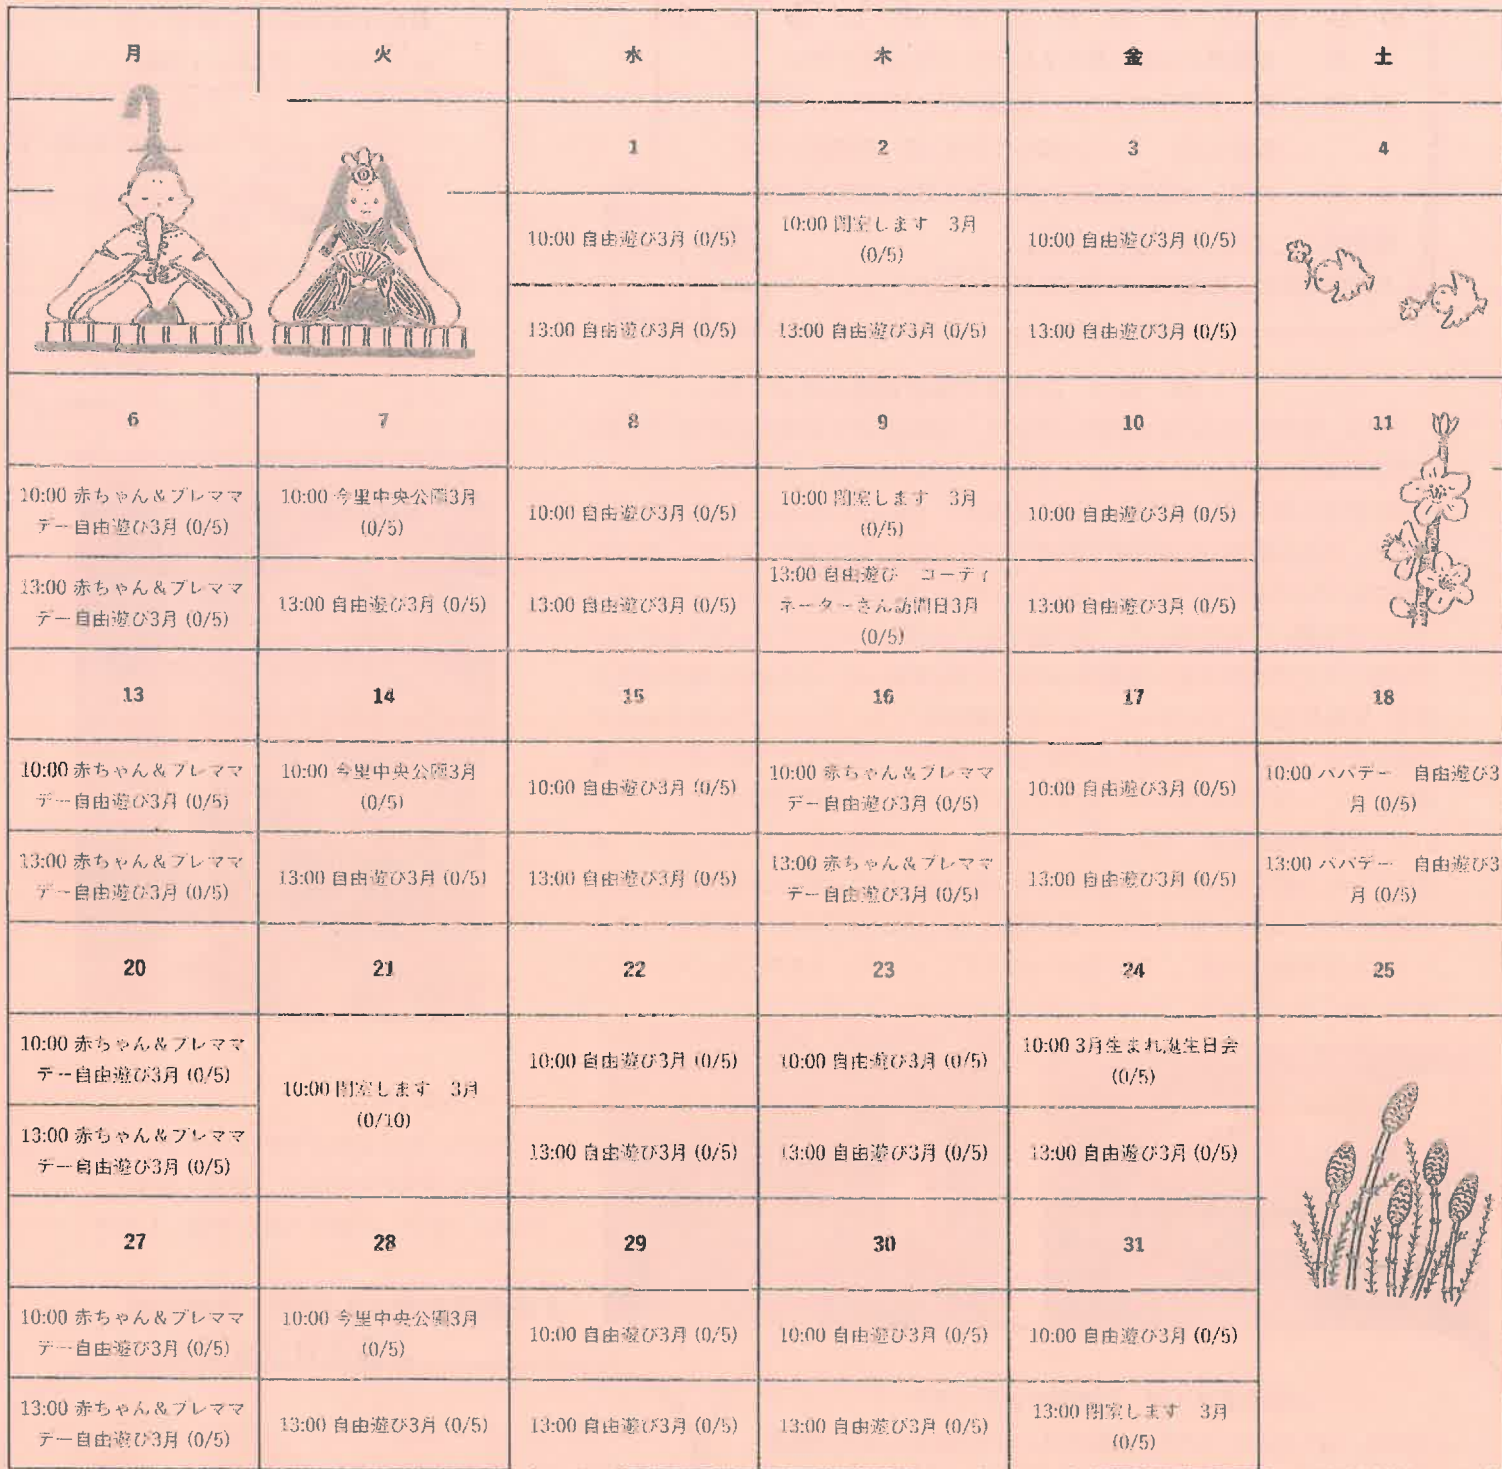 月
火
水
木
金
土
1
2
3
4
10:00 自由遊び3月 (0/5)
10:00 閉室します　3月
(0/5)
10:00 自由遊び3月 (0/5)
13:00 自由遊び3月 (0/5)
13:00 自由遊び3月 (0/5)
13:00 自由遊び3月 (0/5)
6
7
8
9
10
11
10:00 赤ちゃん＆プレママ
デー自由遊び3月 (0/5)
10:00 今里中央公園3月
(0/5)
10:00 自由遊び3月 (0/5)
10:00 閉室します　3月
(0/5)
10:00 自由遊び3月 (0/5)
13:00 赤ちゃん＆プレママ
デー自由遊び3月 (0/5)
13:00 自由遊び3月 (0/5)
13:00 自由遊び3月 (0/5)
13:00 自由遊び　コーディ
ネーターさん訪問日3月
(0/5)
13:00 自由遊び3月 (0/5)
13
14
15
16
17
18
10:00 赤ちゃん＆プレママ
デー自由遊び3月 (0/5)
10:00 今里中央公園3月
(0/5)
10:00 自由遊び3月 (0/5)
10:00 赤ちゃん＆プレママ
デー自由遊び3月 (0/5)
10:00 自由遊び3月 (0/5)
10:00 パパデー　自由遊び3
月 (0/5)
13:00 赤ちゃん＆プレママ
デー自由遊び3月 (0/5)
13:00 自由遊び3月 (0/5)
13:00 自由遊び3月 (0/5)
13:00 赤ちゃん＆プレママ
デー自由遊び3月 (0/5)
13:00 自由遊び3月 (0/5)
13:00 パパデー　自由遊び3
月 (0/5)
20
21
22
23
24
25
10:00 赤ちゃん＆プレママ
デー自由遊び3月 (0/5)
10:00 閉室します　3月
(0/10)
10:00 自由遊び3月 (0/5)
10:00 自由遊び3月 (0/5)
10:00 3月生まれ誕生日会
(0/5)
13:00 赤ちゃん＆プレママ
デー自由遊び3月 (0/5)
13:00 自由遊び3月 (0/5)
13:00 自由遊び3月 (0/5)
13:00 自由遊び3月 (0/5)
27
28
29
30
31
10:00 赤ちゃん＆プレママ
デー自由遊び3月 (0/5)
10:00 今里中央公園3月
(0/5)
10:00 自由遊び3月 (0/5)
10:00 自由遊び3月 (0/5)
10:00 自由遊び3月 (0/5)
13:00 赤ちゃん＆プレママ
デー自由遊び3月 (0/5)
13:00 自由遊び3月 (0/5)
13:00 自由遊び3月 (0/5)
13:00 自由遊び3月 (0/5)
13:00 閉室します　3月
(0/5)